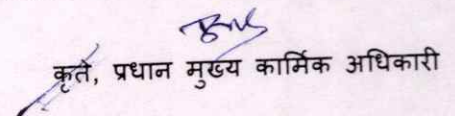 कृते, प्रधान मुख्य कार्मिक अधिकारी